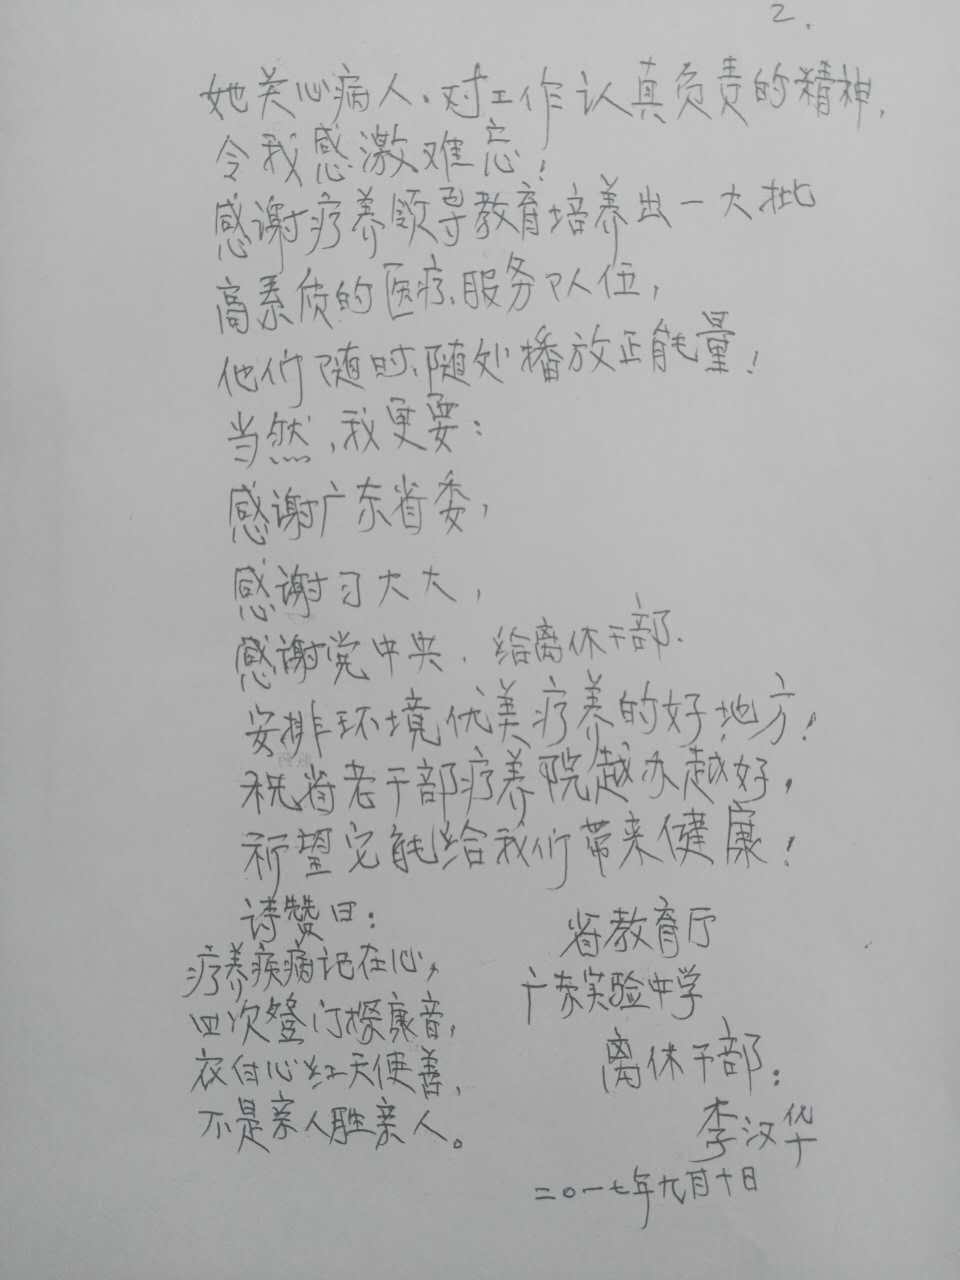 2.
她关心病人。对工作认真负责的精神,
令我感激难忘!
感谢疗养领导教育培养出一大批
高素质的医疗、服务队伍,
他们随时、随处播放正能量!
当然,我更要:
感谢广东省委,
感谢习大大,
感谢党中央. 给离休干部.
安排环境优美疗养的好地方!
祝省老干部疗养院越办越好,
祈望它能给我们带来健康!
诗赞曰:
疗养疾病记在心,
四次登门探康音,
衣白心红天使善,
不是亲人胜亲人。
省教育厅
广东实验中学
离休干部:
李汉华
二〇一七年九月十日